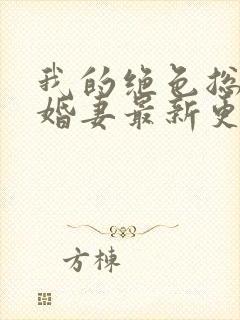 我的绝色总
婚妻最新更
方栋